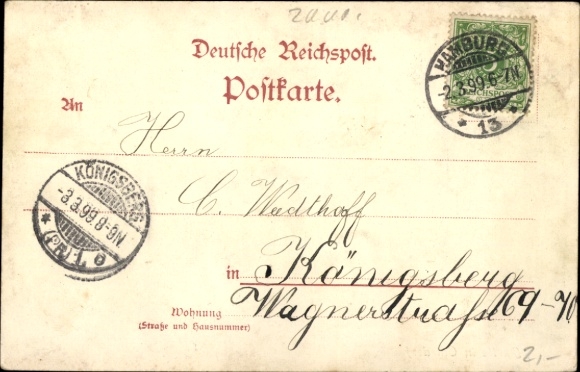 20,00.
Deutsche Reichspost.
Postkarte.
HAMBURG
-2.3.99.6-7N
* 13 *
An
Herrn
KÖNIGSBERG
-3.3.99.8-9N
* (PR.) 1. e
C. Wedthoff
in Königsberg
Wagnerstraße 69-70
Wohnung
(Straße und Hausnummer)
2,-